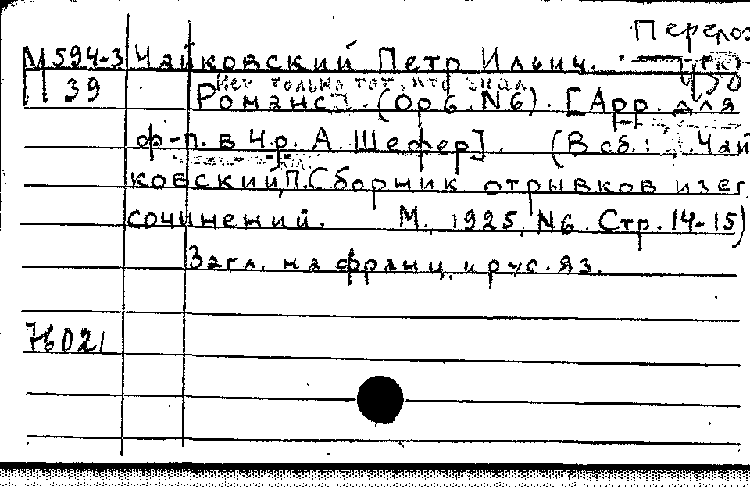 Перелож
М594-3 Чайковский Петр Ильич.
П 39
Нет только тот, кто знал
Романс]. (Op 6. N6). [Арр. для
ф-п. в 4 р. А Шефер]. (В сб.: Чай
ковский, П. Сборник отрывков из ег
сочинений. М., 1925, N6. Стр. 14-15)
Загл. на франц. и рус. яз.
76021